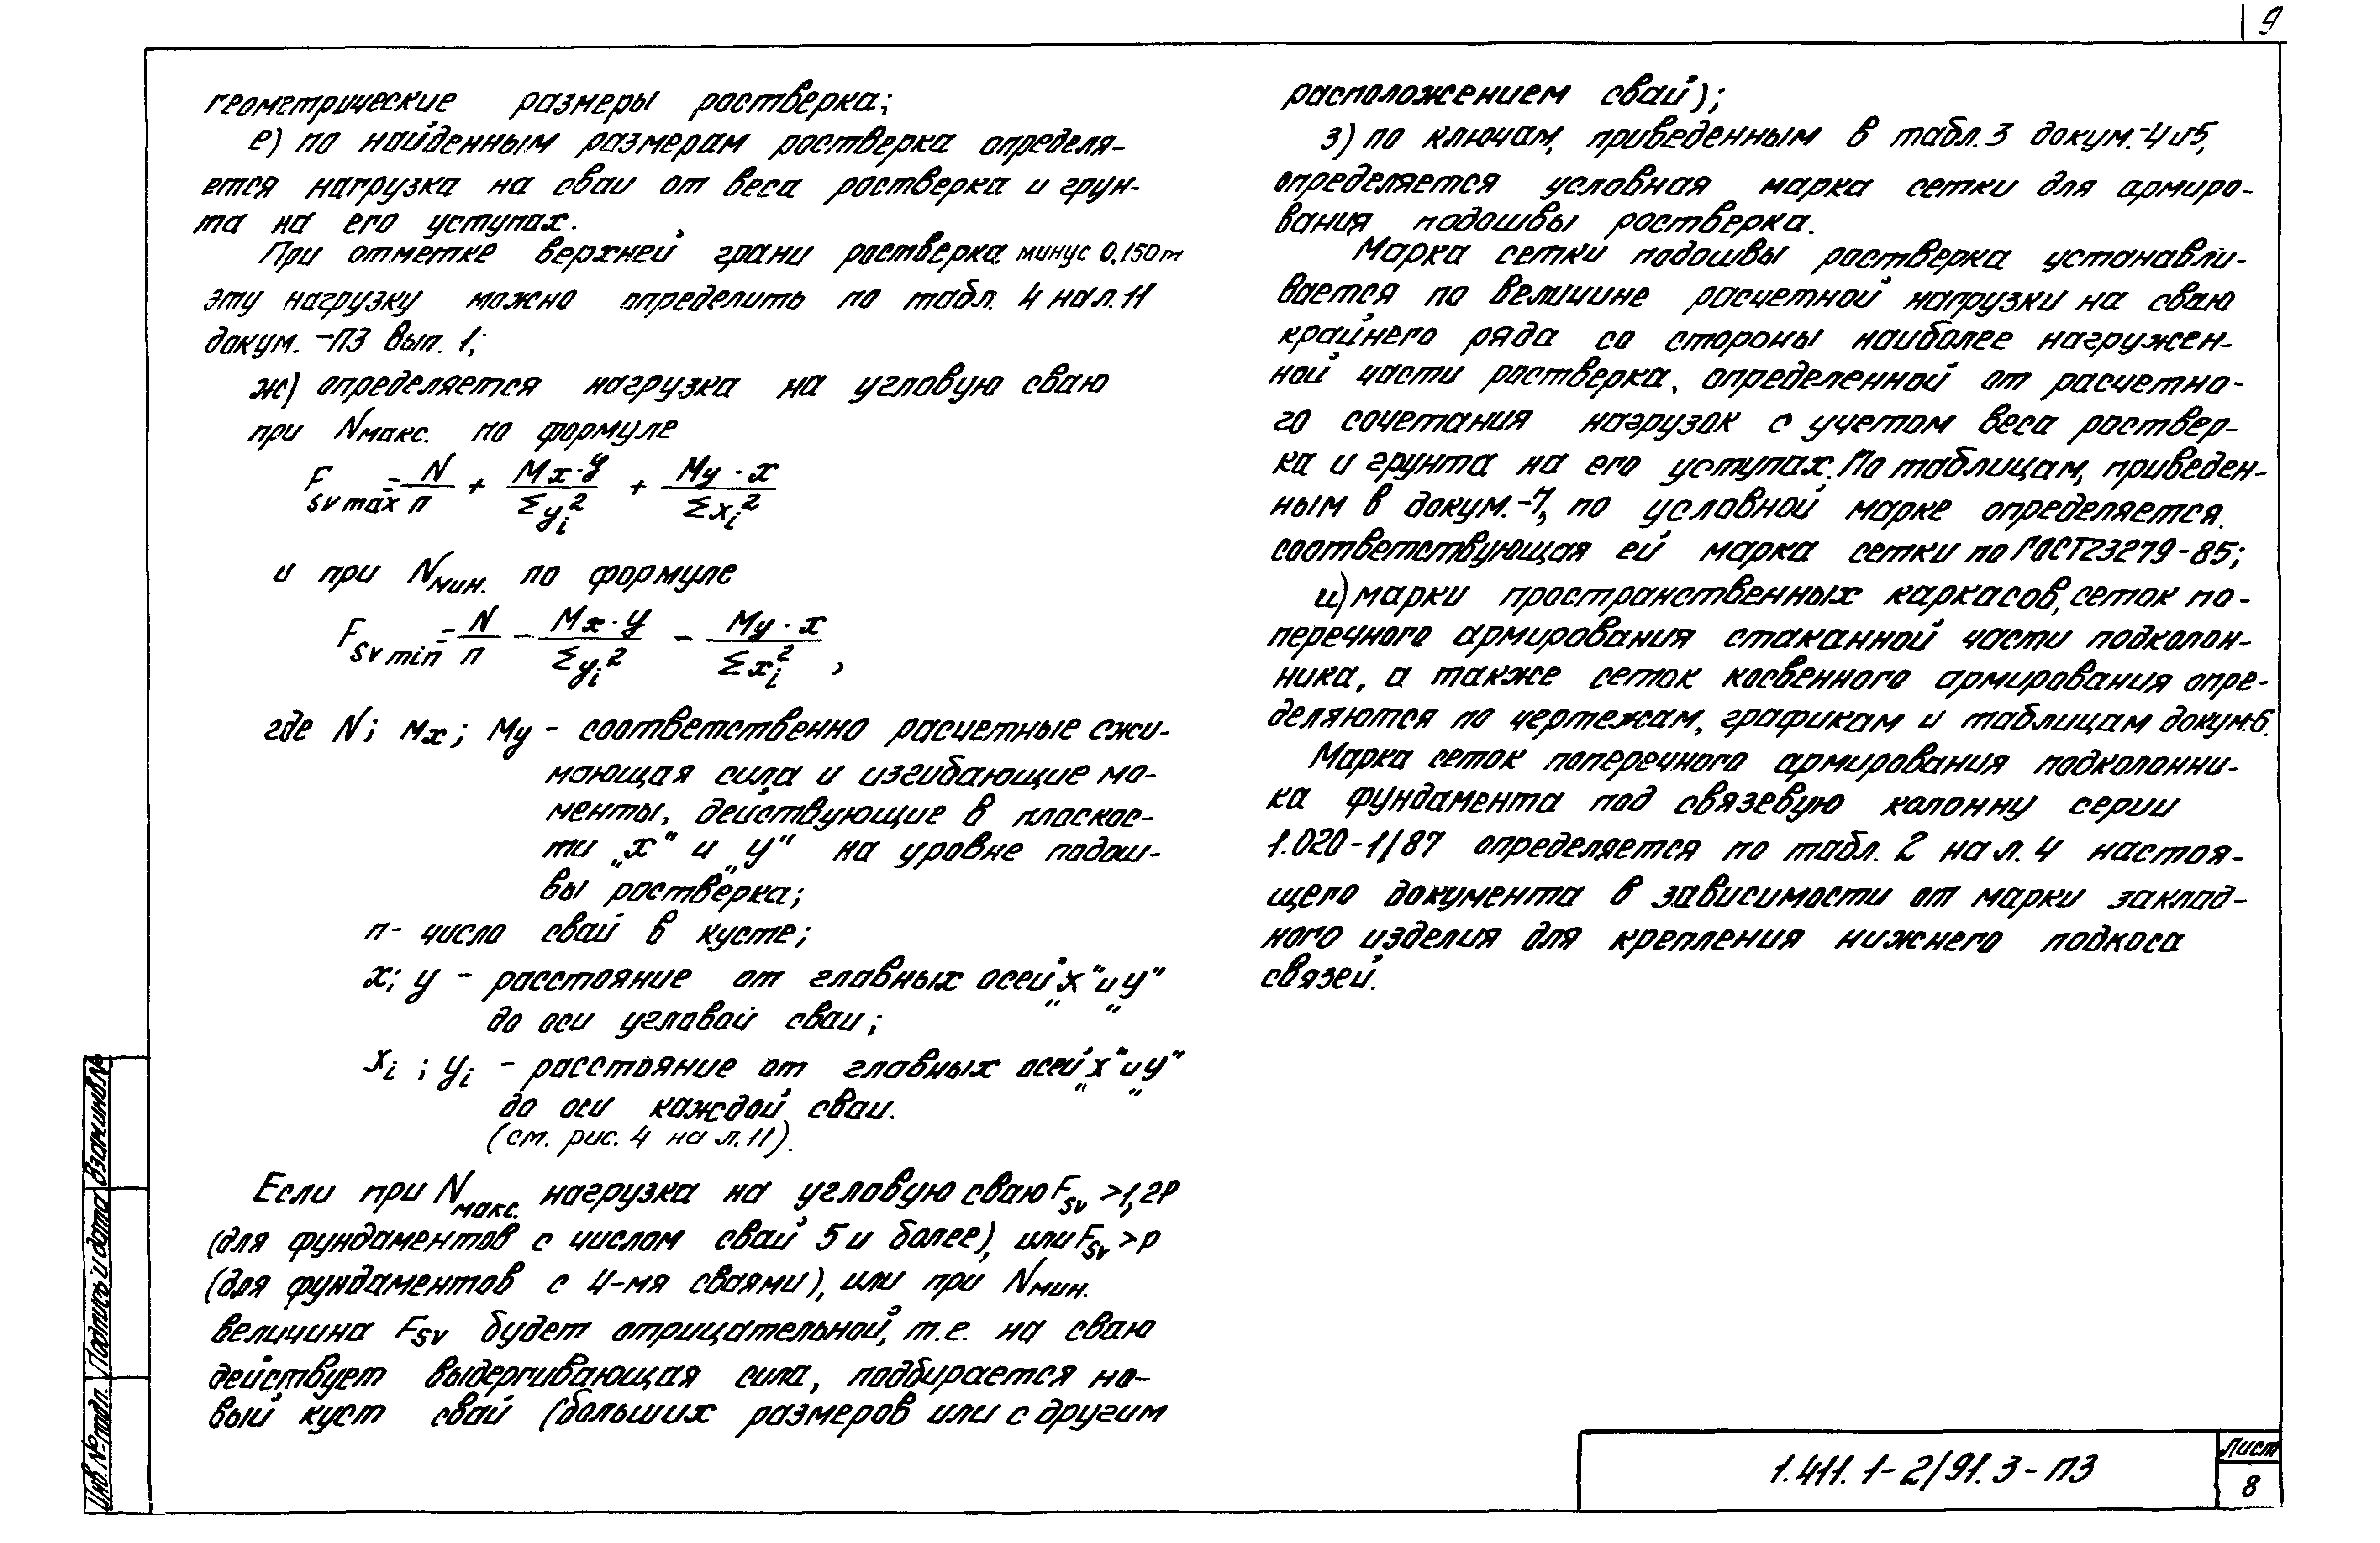 9
геометрические размеры ростверка;
е) по найденным размерам ростверка определя-
ется нагрузка на сваи от веса ростверка и грун-
та на его уступах.
При отметке верхней грани ростверка минус 0,150 м
эту нагрузку можно определить по табл. 4 на л. 11
докум. -ПЗ вып. 1;
ж) определяется нагрузка на угловую сваю
при Nмакс. по формуле
F sv max = N/n + Mx·y/Σyi² + My·x/Σxi²
и при Nмин. по формуле
F sv min = N/n - Mx·y/Σyi² - My·x/Σxi²,
где N; Mx; My - соответственно расчетные сжи-
мающая сила и изгибающие мо-
менты, действующие в плоскос-
ти „х" и „у" на уровне подош-
вы ростверка;
n- число свай в кусте;
x; y - расстояние от главных осей „х" и „у"
до оси угловой сваи;
xi; yi - расстояние от главных осей „х" и „у"
до оси каждой сваи.
(см. рис. 4 на л. 11).
Если при Nмакс. нагрузка на угловую сваю Fsv >1,2Р
(для фундаментов с числом свай 5 и более), или Fsv >р
(для фундаментов с 4-мя сваями), или при Nмин.
величина Fsv будет отрицательной, т.е. на сваю
действует выдергивающая сила, подбирается но-
вый куст свай (больших размеров или с другим
расположением свай);
з) по ключам, приведенным в табл. 3 докум.-4и5,
определяется условная марка сетки для армиро-
вания подошвы ростверка.
Марка сетки подошвы ростверка устанавли-
вается по величине расчетной нагрузки на сваю
крайнего ряда со стороны наиболее нагружен-
ной части ростверка, определенной от расчетно-
го сочетания нагрузок с учетом веса роствер-
ка и грунта на его уступах. По таблицам, приведен-
ным в докум.-7, по условной марке определяется
соответствующая ей марка сетки по ГОСТ23279-85;
и) марки пространственных каркасов, сеток по-
перечного армирования стаканной части подколон-
ника, а также сеток косвенного армирования опре-
деляются по чертежам, графикам и таблицам докум.-6.
Марка сеток поперечного армирования подколонни-
ка фундамента под связевую колонну серии
1.020-1/87 определяется по табл. 2 на л. 4 настоя-
щего документа в зависимости от марки заклад-
ного изделия для крепления нижнего подкоса
связей.
Инв.№подл. Подпись и дата Взам.инв.№
1.411.1-2/91.3-ПЗ
Лист
8